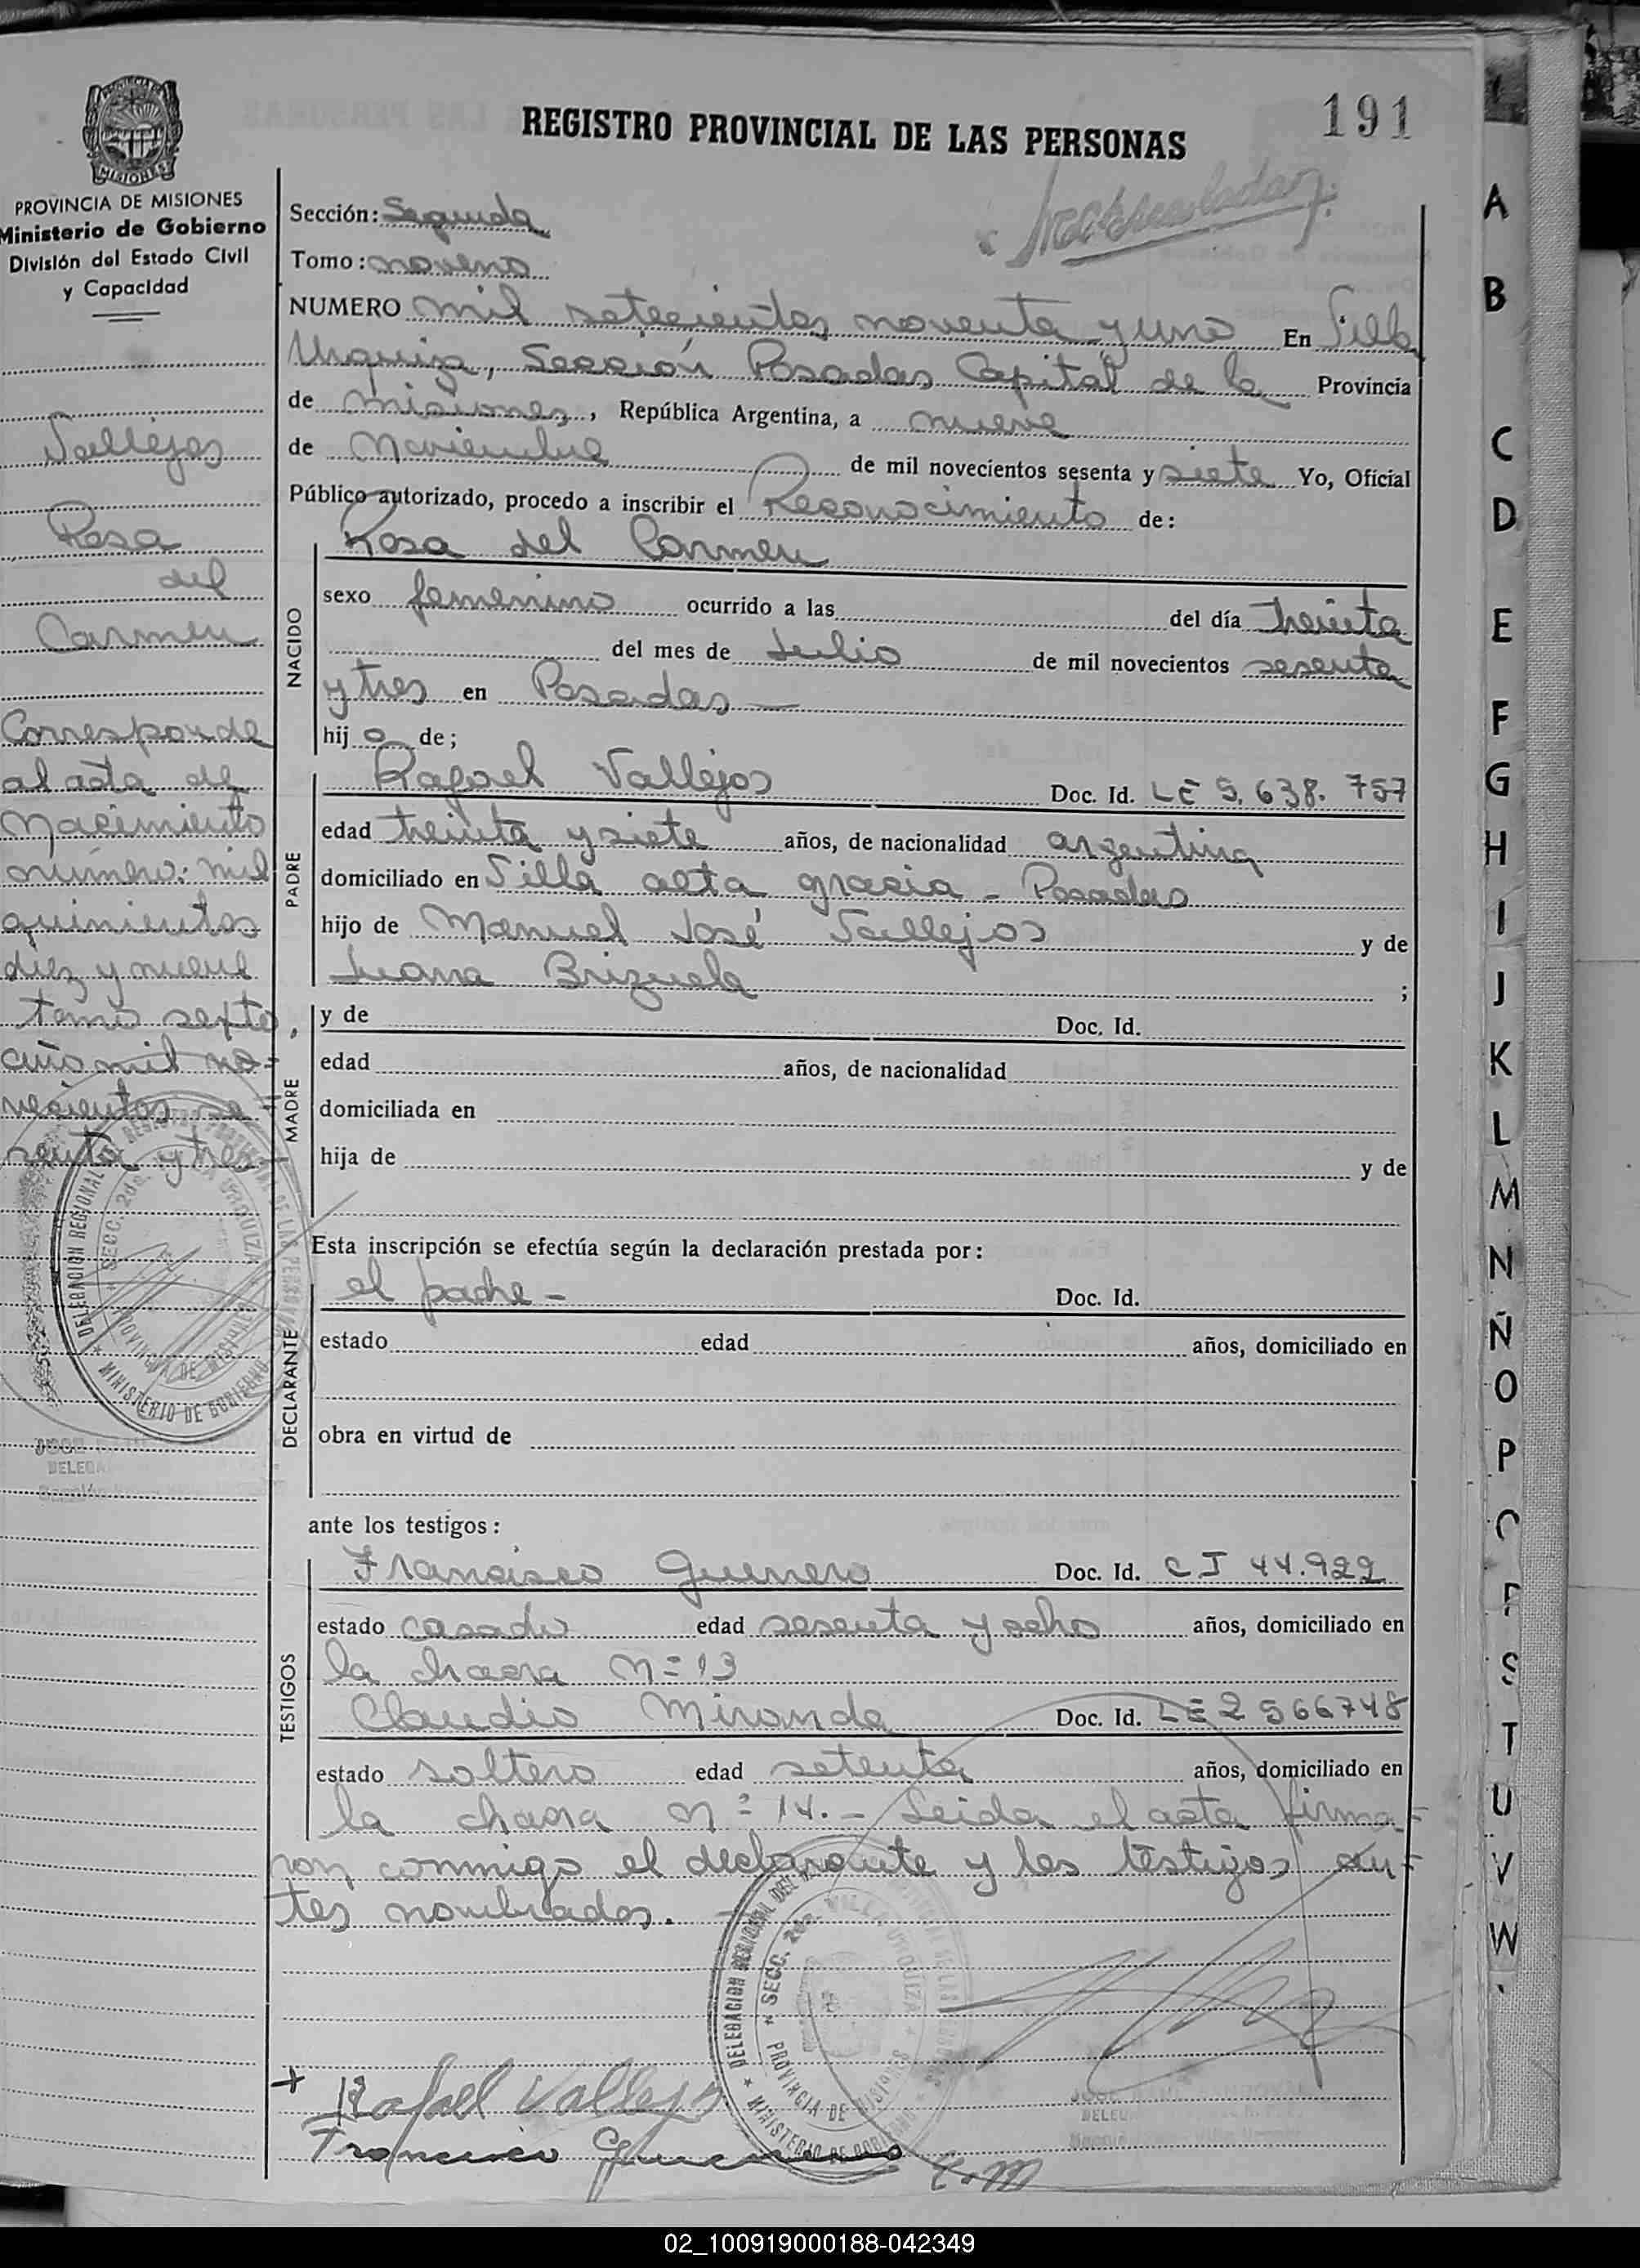 191
REGISTRO PROVINCIAL DE LAS PERSONAS
MISIONES
PROVINCIA DE MISIONES
Ministerio de Gobierno
División del Estado Civil
y Capacidad
Vallejos
Rosa
del
Carmen
Corresponde
al acta de
Nacimiento
número: mil
quinientos
diez y nueve
tomo sexto,
año mil no=
vecientos se=
senta y tres
DELEGACION REGIONAL DE LAS
SECC. 2da. URQUIZA
PROVINCIA DE MISIONES
MINISTERIO DE GOBIERNO
Sección: Segunda
Tomo: noveno
NUMERO mil setecientos noventa y uno En Villa
Urquiza, Sección Posadas Capital de la Provincia
de misiones, República Argentina, a nueve
de Noviembre de mil novecientos sesenta y siete Yo, Oficial
Público autorizado, procedo a inscribir el Reconocimiento de:
Rosa del Carmen
NACIDO
sexo femenino ocurrido a las del día treinta
del mes de Julio de mil novecientos sesenta
y tres en Posadas —
hij o de;
PADRE
Rafael Vallejos Doc. Id. LE 5.638.757
edad treinta y siete años, de nacionalidad argentina
domiciliado en Villa alta gracia - Posadas
hijo de Manuel José Vallejos y de
Juana Brizuela ;
MADRE
y de Doc. Id.
edad años, de nacionalidad
domiciliada en
hija de y de
Esta inscripción se efectúa según la declaración prestada por:
DECLARANTE
el padre - Doc. Id.
estado edad años, domiciliado en
obra en virtud de
ante los testigos:
TESTIGOS
Francisco Guerrero Doc. Id. C I 44.922
estado casado edad sesenta y ocho años, domiciliado en
la chacra N=13
Claudio Miranda Doc. Id. LE 2566748
estado soltero edad setenta años, domiciliado en
la chacra N=14.- Leida el acta firma=
ron conmigo el declarante y los testigos an=
tes nombrados. -
DELEGACION REGIONAL DEL
SECC. 2da. VILLA URQUIZA
PROVINCIA DE MISIONES
MINISTERIO DE GOBIERNO
+ Rafael Vallejos
Francisco Guerrero
A
B
C
D
E
F
G
H
I
J
K
L
M
N
Ñ
O
P
S
T
U
V
W
02_100919000188-042349